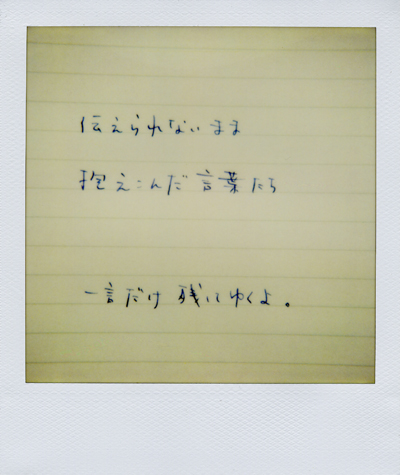 伝えられないまま
抱えこんだ言葉たち
一言だけ残してゆくよ。